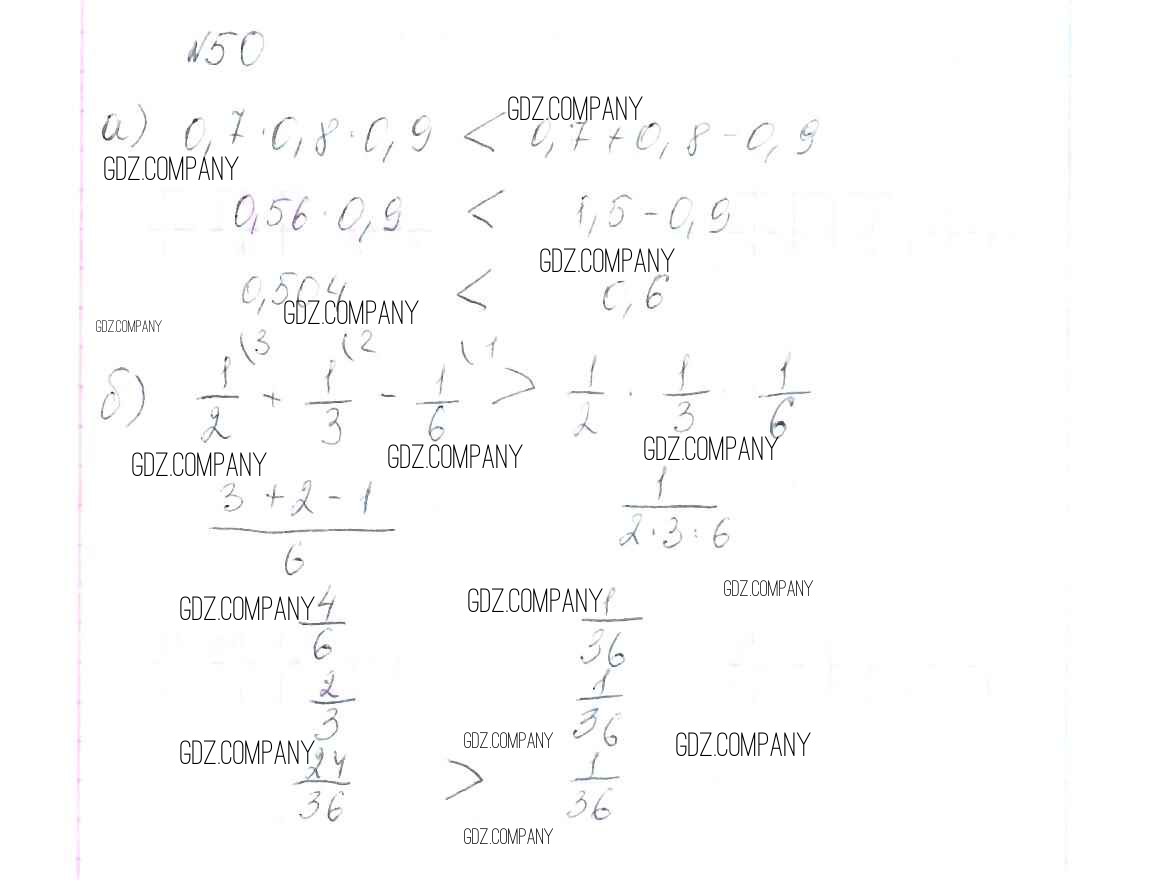 N50
GDZ.COMPANY
а) 0,7·0,8·0,9 < 0,7+0,8-0,9
GDZ.COMPANY
0,56·0,9 < 1,5-0,9
GDZ.COMPANY
0,504 < 0,6
GDZ.COMPANY
GDZ.COMPANY
б) 1/2 (3 + 1/3 (2 - 1/6 (1 > 1/2 · 1/3 1/6
GDZ.COMPANY GDZ.COMPANY GDZ.COMPANY
3+2-1/6 1/2·3·6
GDZ.COMPANY
GDZ.COMPANY 4/6 GDZ.COMPANY 1/36
2/3 1/36
GDZ.COMPANY GDZ.COMPANY GDZ.COMPANY
24/36 > 1/36
GDZ.COMPANY